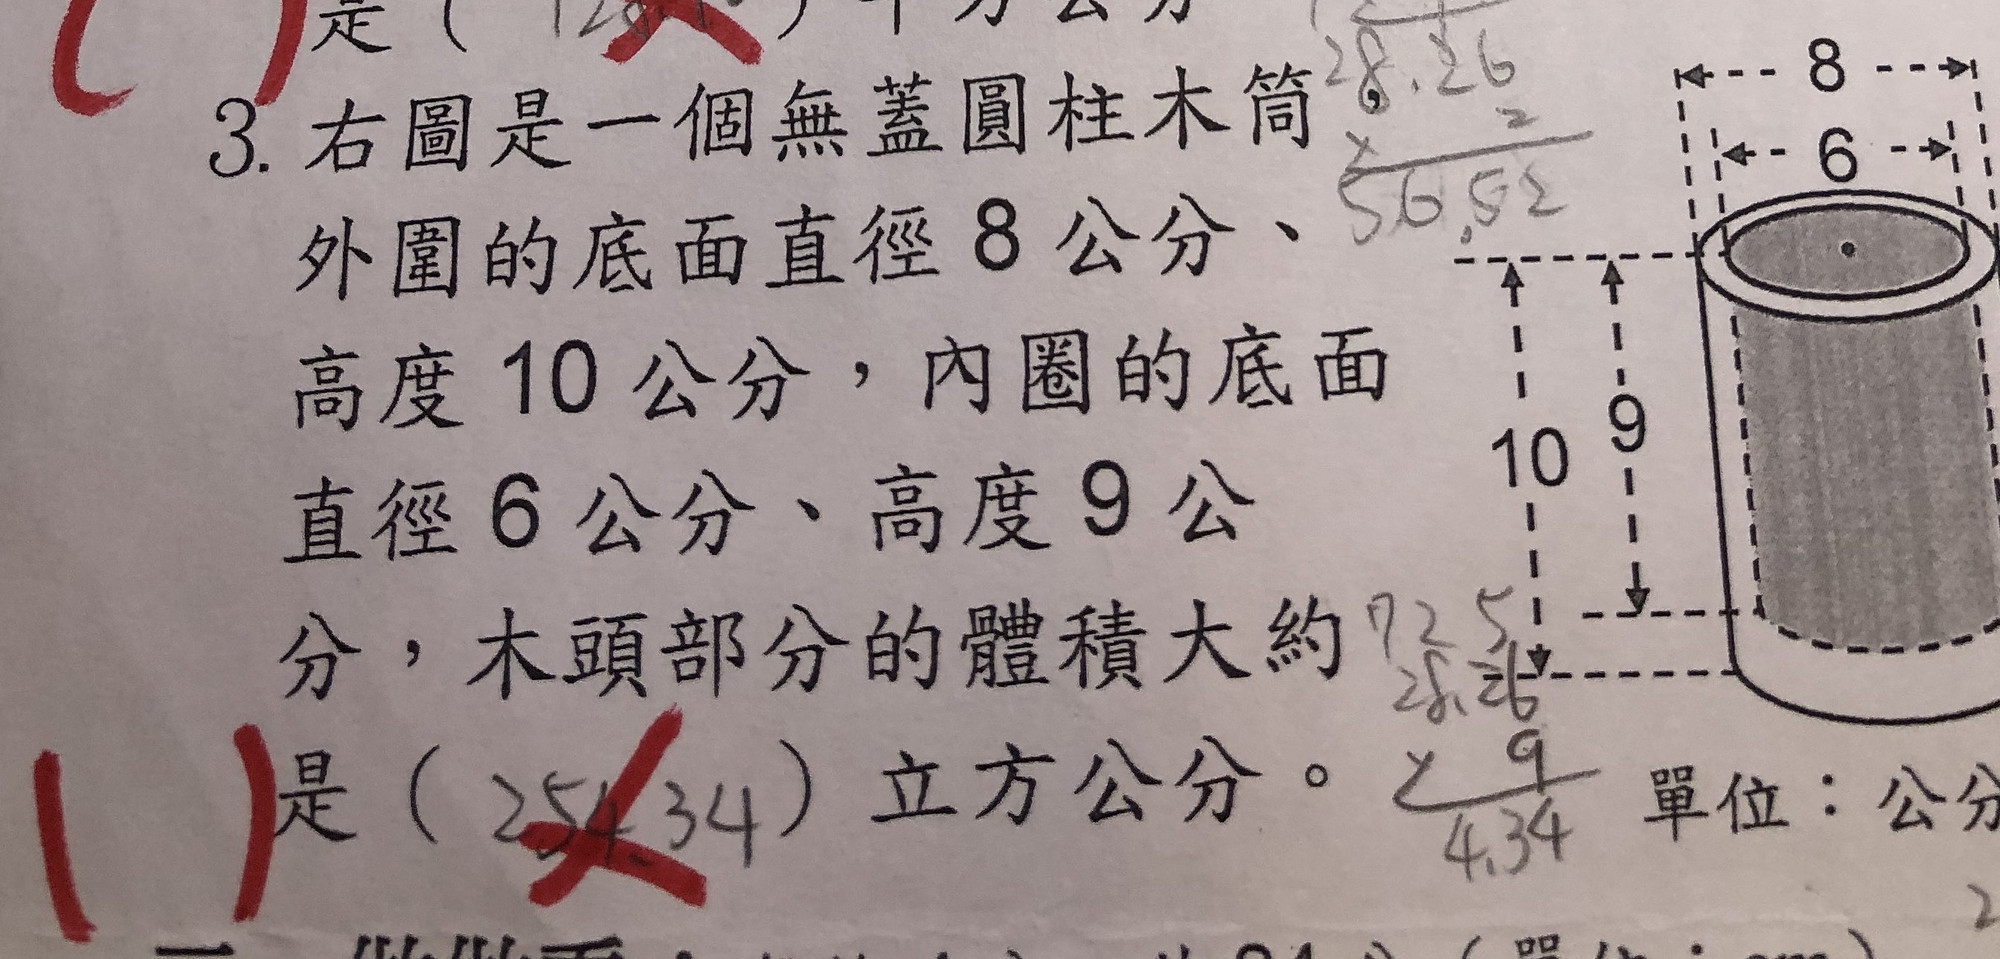 是（ ）平方公分
28.26
× 2
56.52
3. 右圖是一個無蓋圓柱木筒，
外圍的底面直徑 8 公分、
高度 10 公分，內圈的底面
直徑 6 公分、高度 9 公
分，木頭部分的體積大約
是（ 254.34 ）立方公分。
725
28.26
× 9
4.34
8
6
10
9
單位：公分